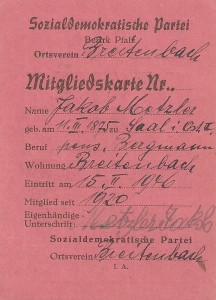 Sozialdemokratische Partei
Bezirk Pfalz
Ortsverein Breitenbach
Mitgliedskarte Nr.
Name Jakob Metzler
geb. am 11. III 1875 zu Saal i. Ostt.
Beruf pens. Bergmann
Wohnung Breitenbach
Eintritt am 15. II. 1946
Mitglied seit 1920
Eigenhändige
Unterschrift: Metzler Jakob
Sozialdemokratische Partei
Ortsverein Breitenbach
I. A.